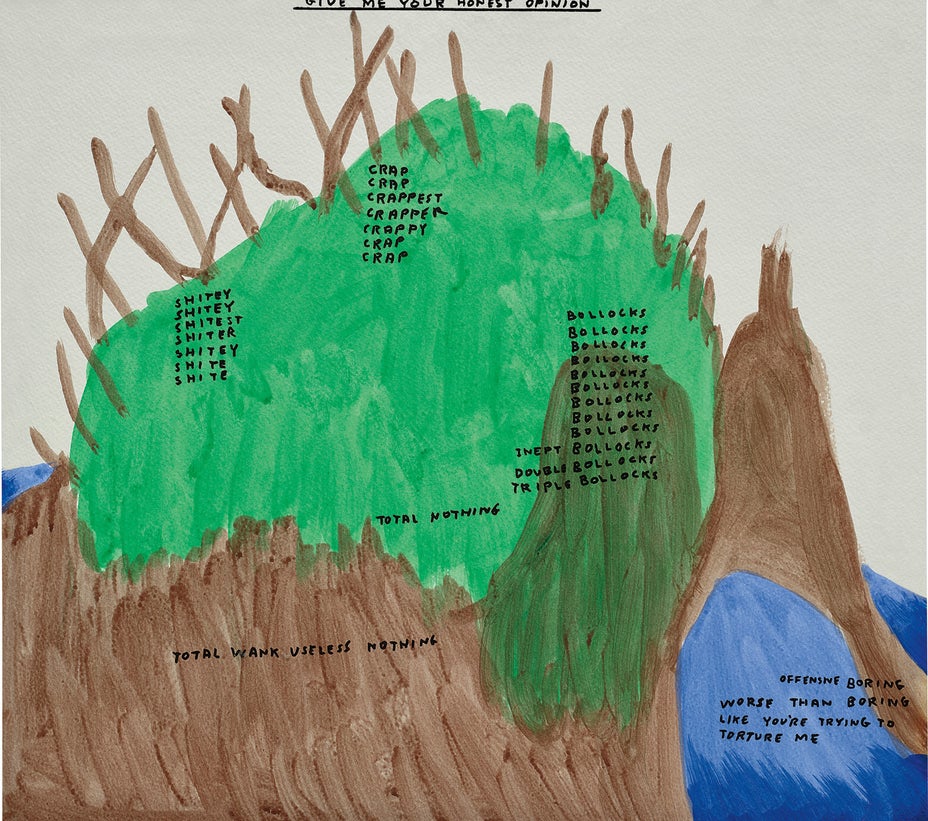 GIVE ME YOUR HONEST OPINION
CRAP
CRAP
CRAPPEST
CRAPPER
CRAPPY
CRAP
CRAP
SHITEY
SHITEY
SHITEST
SHITER
SHITEY
SHITE
SHITE
BOLLOCKS
BOLLOCKS
BOLLOCKS
BOLLOCKS
BOLLOCKS
BOLLOCKS
BOLLOCKS
BOLLOCKS
BOLLOCKS
INEPT BOLLOCKS
DOUBLE BOLLOCKS
TRIPLE BOLLOCKS
TOTAL NOTHING
TOTAL WANK USELESS NOTHING
OFFENSIVE BORING
WORSE THAN BORING
LIKE YOU'RE TRYING TO
TORTURE ME